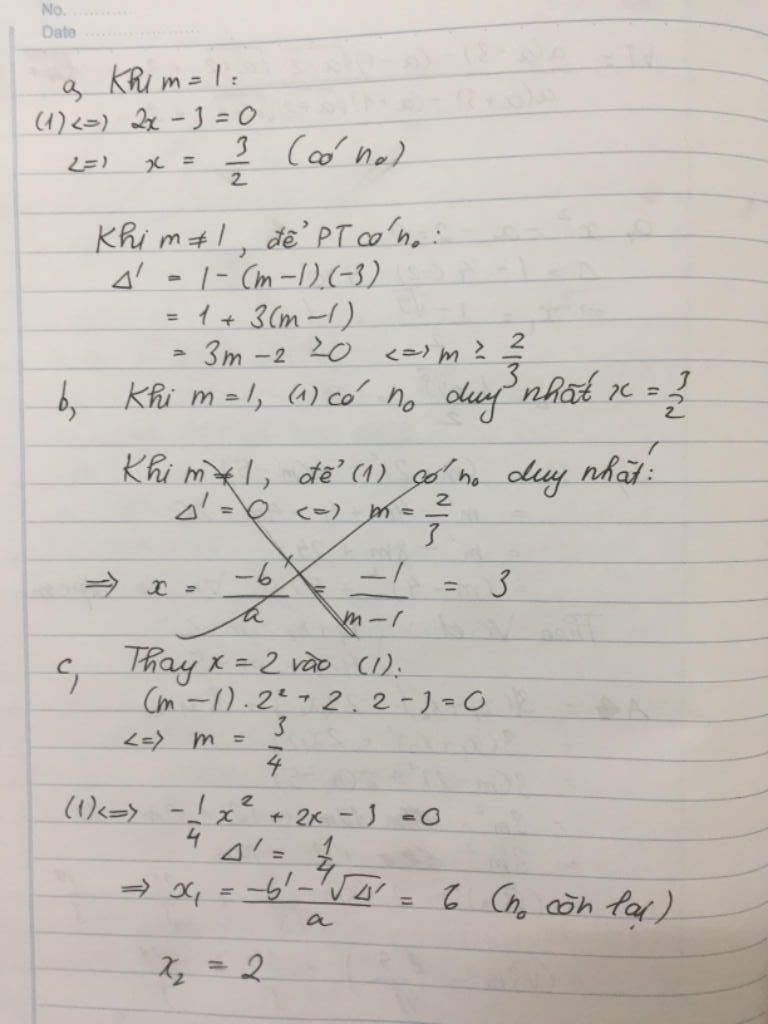 No. ..................
Date ..........................
a, Khi m = 1 :
(1) <=> 2x - 3 = 0
<=> x = 3/2 (có n₀)
Khi m ≠ 1, để PT có n₀ :
Δ' = 1 - (m - 1).(-3)
= 1 + 3(m - 1)
= 3m - 2 ≥ 0 <=> m ≥ 2/3
b, Khi m = 1, (1) có n₀ duy nhất x = 3/2
Khi m ≠ 1, để (1) có n₀ duy nhất :
Δ' = 0 <=> m = 2/3
=> x = -b'/a = -1/(m - 1) = 3
c, Thay x = 2 vào (1) :
(m - 1) . 2² + 2 . 2 - 3 = 0
<=> m = 3/4
(1) <=> -1/4 x² + 2x - 3 = 0
Δ' = 1/4
=> x₁ = (-b' - √Δ')/a = 6 (n₀ còn lại)
x₂ = 2